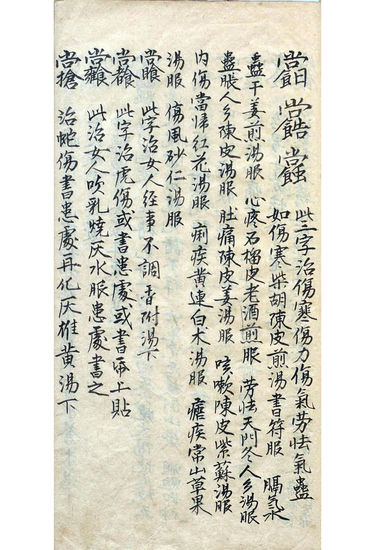 此三字治傷寒傷力傷氣劳怯氣蠱
如傷寒柴胡陳皮煎湯書符服 膈氣水
蠱干姜煎湯服 心疼石榴皮老酒煎服 劳怯天門冬人参湯服
蠱脹人参陳皮湯服 肚痛陳皮姜湯服 咳嗽陳皮紫蘇湯服
内傷當歸紅花湯服 痢疾黄連白木湯服 瘧疾常山草果
湯服 傷風砂仁湯服
此字治女人经事不調香附湯下
此字治虎傷或書患處或書帋上貼
此治女人吹乳燒灰水服患處書之
治蛇傷書患處再化灰雄黄湯下